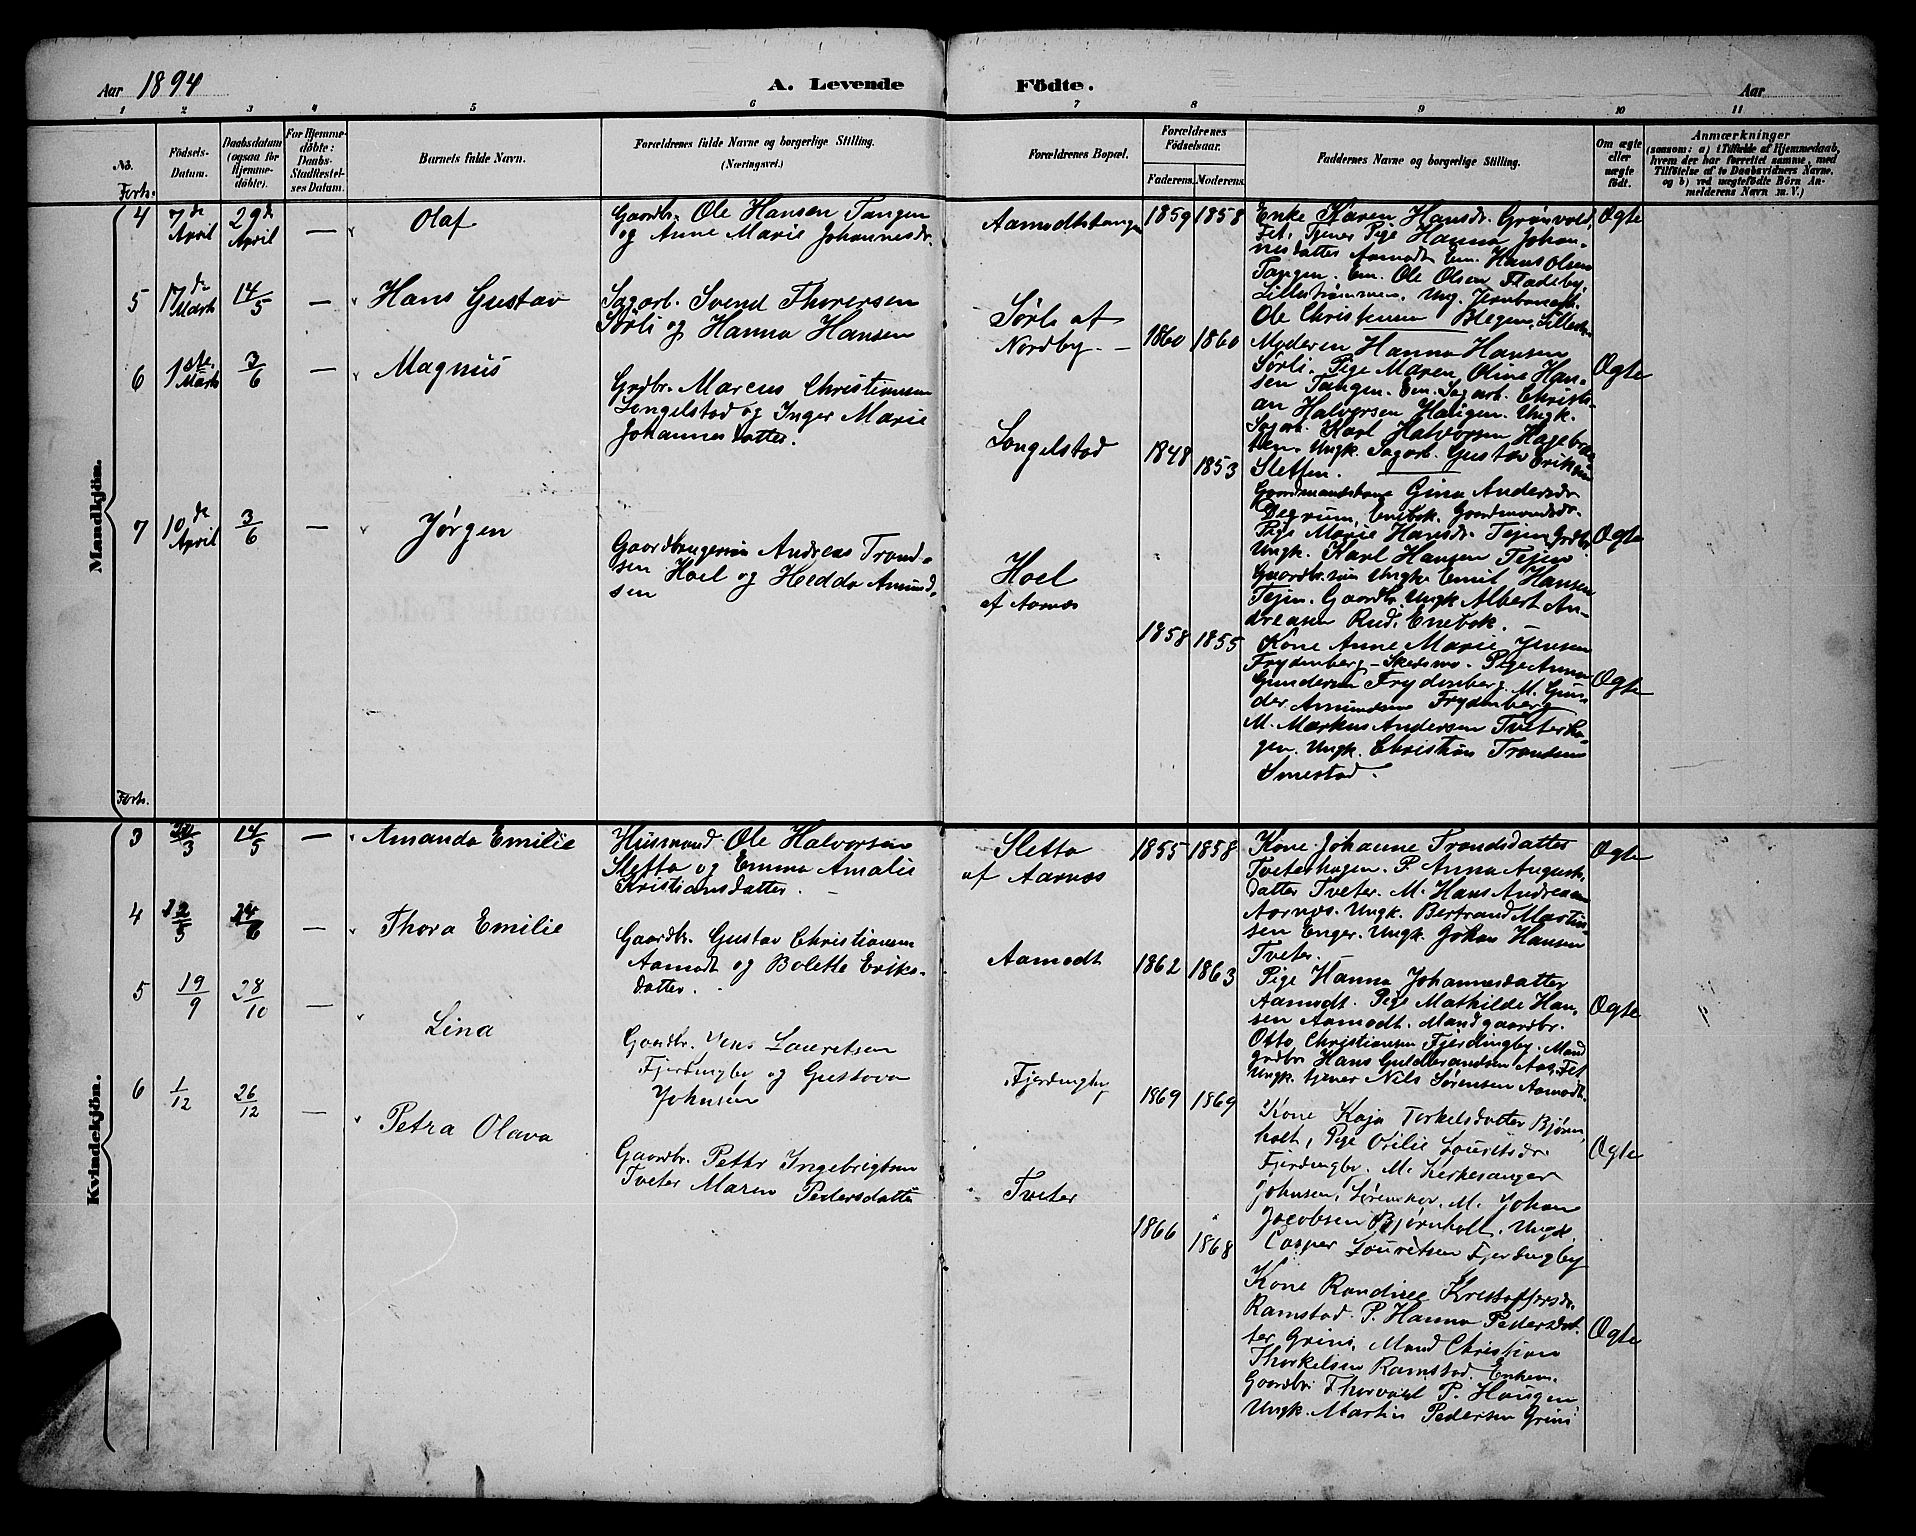 Aar 1894
A. Levende Födte.
Aar
1 2 3 4 5 6 7 8 9 10 11
No.
Födsels-Datum.
Daabsdatum (ogsaa for Hjemme-döbte).
For Hjemme-döbte: Daabs-Stadfæstelses Datum.
Barnets fulde Navn.
Forældrenes fulde Navne og borgerlige Stilling. (Næringsvei.)
Forældrenes Bopæl.
Forældrenes Födselsaar.
Faderens. Moderens.
Faddernes Navne og borgerlige Stilling.
Om ægte eller uægte födt.
Anmærkninger
(saasom: a) i Tilfælde af Hjemmedaab,
hvem der har forrettet samme, med
Tilföielse af to Daabsvidners Navne,
og b) ved uægtefödte Börn An-
melderens Navn m. V.)
Mandkjön.
Forts.
4 7de April 29de April — Olaf
Gaardbr. Ole Hansen Tangen
og Anne Marie Johannesdr.
Aamodtstangen 1859 1858
Enke Karen Hansdr. Grönvold,
Fet, Tjener Pige Hanna Johan-
nesdatter Aamodt Em. Hans Olsen
Tangen. Em. Ole Olsen Fladeby,
Lillestrømmen. Ung. Jernbanearb.
Ole Christensen Blegen, Lillestr.
Ægte
5 17de Marts 14/5 — Hans Gustav
Sagarb. Svend Thorersen
Sörli og Hanna Hansen
Sørli af
Nordby. — 1860 1860
Moderen Hanna Hansen
Sørli. Pige Maren Oline Han-
sen Tangen. Em. Sagarb. Christi-
an Halvorsen Haugen. Ungk.
Sagarb. Karl Halvorsen Hagebraa-
ten. Ungk. Sagarb. Gustav Eriksen
Sletten.
Ægte
6 1ste Marts 3/6 — Magnus
Grdbr. Marcus Christiansen
Longelstad og Inger Marie
Johannesdatter.
Longelstad 1848 1853
Gaardmandskone Gina Andersdr.
Degrum, Enebok. Gaardmandsdr.
Pige Marie Hansdr. Tejen Grdbr.
Ungk. Karl Hansen Tejen
Gaardbr.søn Ungk. Emil Hansen
Tejen. Gaardbr. Ungk Albert An-
dreasen Rud. Enebok. —
Ægte
7 10de April 3/6 — Jørgen
Gaardbrugersøn Andreas Trond-
sen Hoel og Hedda Amund-
sen
Hoel
af Aarnæs 1858 1855
Kone Anne Marie Jensen
Frydenberg – Skedsmo. Pige Anna
Gundersen Frydenberg. M. Gun-
der Amundsen Frydenberg
M. Markus Andersen Tveterha-
gen. Ungk. Christian Trondsen
Smestad.
Ægte
Kvindekjön.
Forts.
3 /3 14/5 — Amanda Emilie
Husmand Ole Halvorsen
Sletta og Emma Amalie
Kristiansdatter. —
Sletta
af Aarnæs 1855 1858
Kone Johanne Trondsdatter
Tveterhagen. P. Anna August-
datter Tveter. M. Hans Andreasen
Aarnæs. Ungk. Bertrand Martin-
sen Enger. Ungk. Johan Hansen
Tveter. —
Ægte
4 /5 24/6 — Thora Emilie
Gaardbr. Gustav Christiansen
Aamodt og Bolette Eriks-
datter.
Aamodt 1862 1863
Pige Hanna Johannesdatter
Aamodt. Pige Mathilde Han-
sen Aamodt. Mand gaardbr.
Otto Christiansen Fjerdingby. Mand
grdbr. Hans Guldbrandsen Aas, Fet
Ungk. tjener Nils Sørensen Aamodt.
Ægte
5 19/9 28/10 — Lina
Gaardbr. Jens Lauretsen
Fjerdingby og Gustava
Johnsen
Fjerdingby 1869 1869
Kone Kaja Torkelsdatter Bjørn-
holt, Pige Otilie Louritsdr.
Fjerdingby. M. Kirkesanger
Johnsen, Lørenskov. M. Johan
Jacobsen Bjørnholt. Ungk.
Casper Louretsen Fjerdingby
Ægte
6 1/12 26/12 — Petra Olava
Gaardbr. Petter Ingebrigtsen
Tveter Maren Pedersdatter
Tveter 1866 1868
Kone Randine Kristoffersdr.
Ramstad. P. Hanna Pedersdat-
ter Grini, Mand Christian
Thorkelsen Ramstad. Enkem.
Gaardbr. Thorvald P. Haugen
Ungk. Martin Pedersen Grini
Ægte